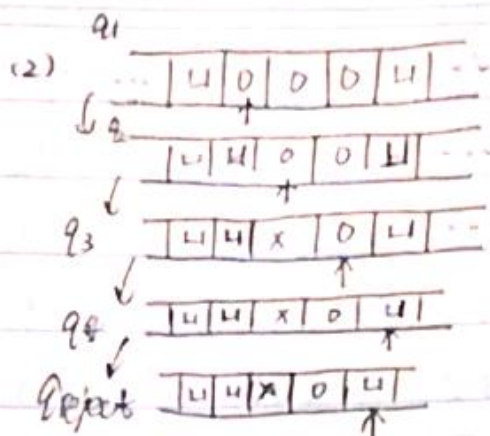 q1
(2) ... ⊔ 0 0 0 ⊔ ...
q2 ⊔ ⊔ 0 0 ⊔ ...
q3 ⊔ ⊔ x 0 ⊔ ...
q4 ⊔ ⊔ x 0 ⊔
qreject ⊔ ⊔ x 0 ⊔